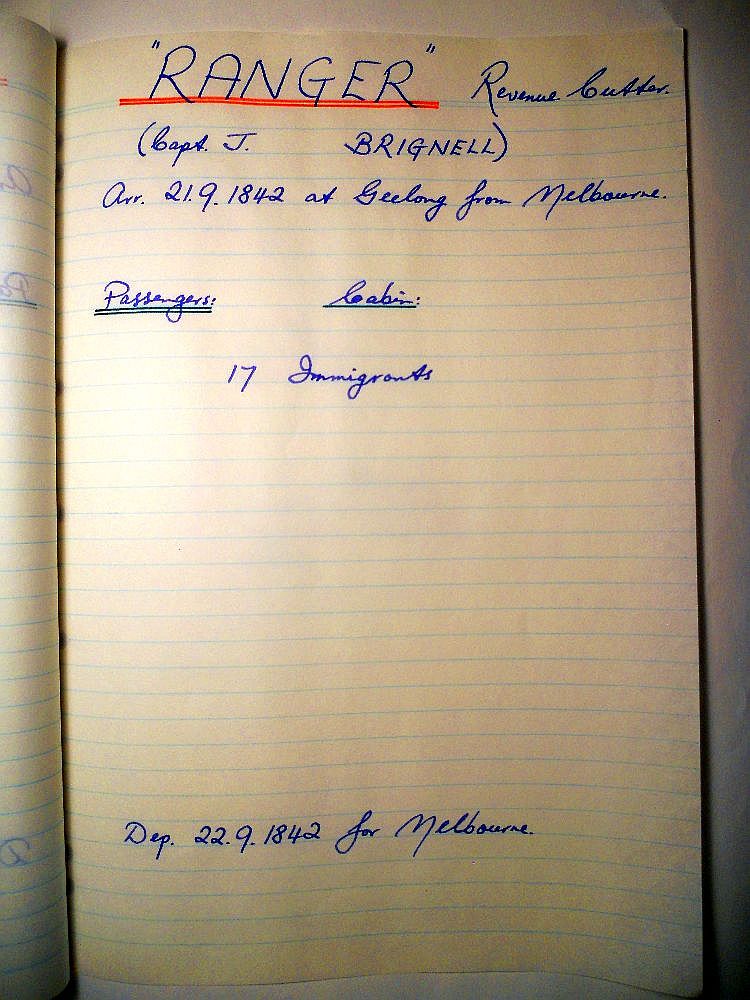 "RANGER" Revenue Cutter.
(Capt. J. BRIGNELL)
Arr. 21.9.1842 at Geelong from Melbourne.
Passengers: Cabin:
17 Immigrants
Dep. 22.9.1842 for Melbourne.